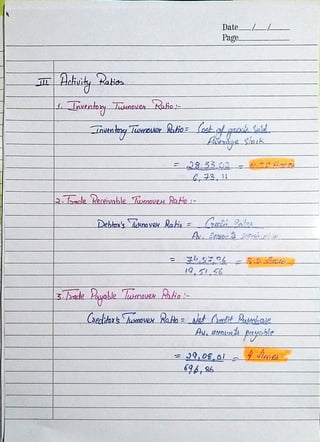 Date / /
Page
III Activity Ratios
1. Inventory Turnover Ratio :-
Inventory Turnover Ratio = Cost of goods Sold
Average Stock
= 28.53.02 =
6,73,11
2. Trade Receivable Turnover Ratio :-
Debtor's Turnover Ratio = Credit Sales
Av. amounts
= 74,57,76 =
19,51,56
3. Trade Payable Turnover Ratio :-
Creditors Turnover Ratio = Net Credit Purchase
Av. amounts payable
= 29,08,01 = 4 times
696,86